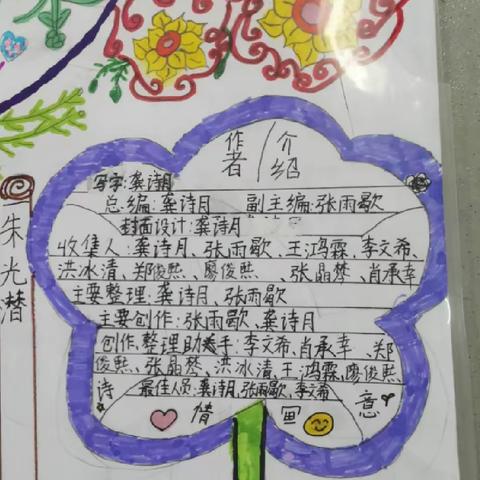 作者/介绍
写字:龚诗月
总编:龚诗月 副主编:张雨歇
封面设计:龚诗月
收集人:龚诗月、张雨歇、王鸿霖、李文希、
洪冰清、郑俊熙、廖俊熙 、张晶梦、肖承幸
主要整理:龚诗月、张雨歇
主要创作:张雨歇、龚诗月
创作、整理助手:李文希、肖承幸、郑
俊熙、张晶梦、洪冰清、王鸿霖、廖俊熙、
最佳人员:龚诗月、张雨歇、李文希
诗情画意
朱光潜